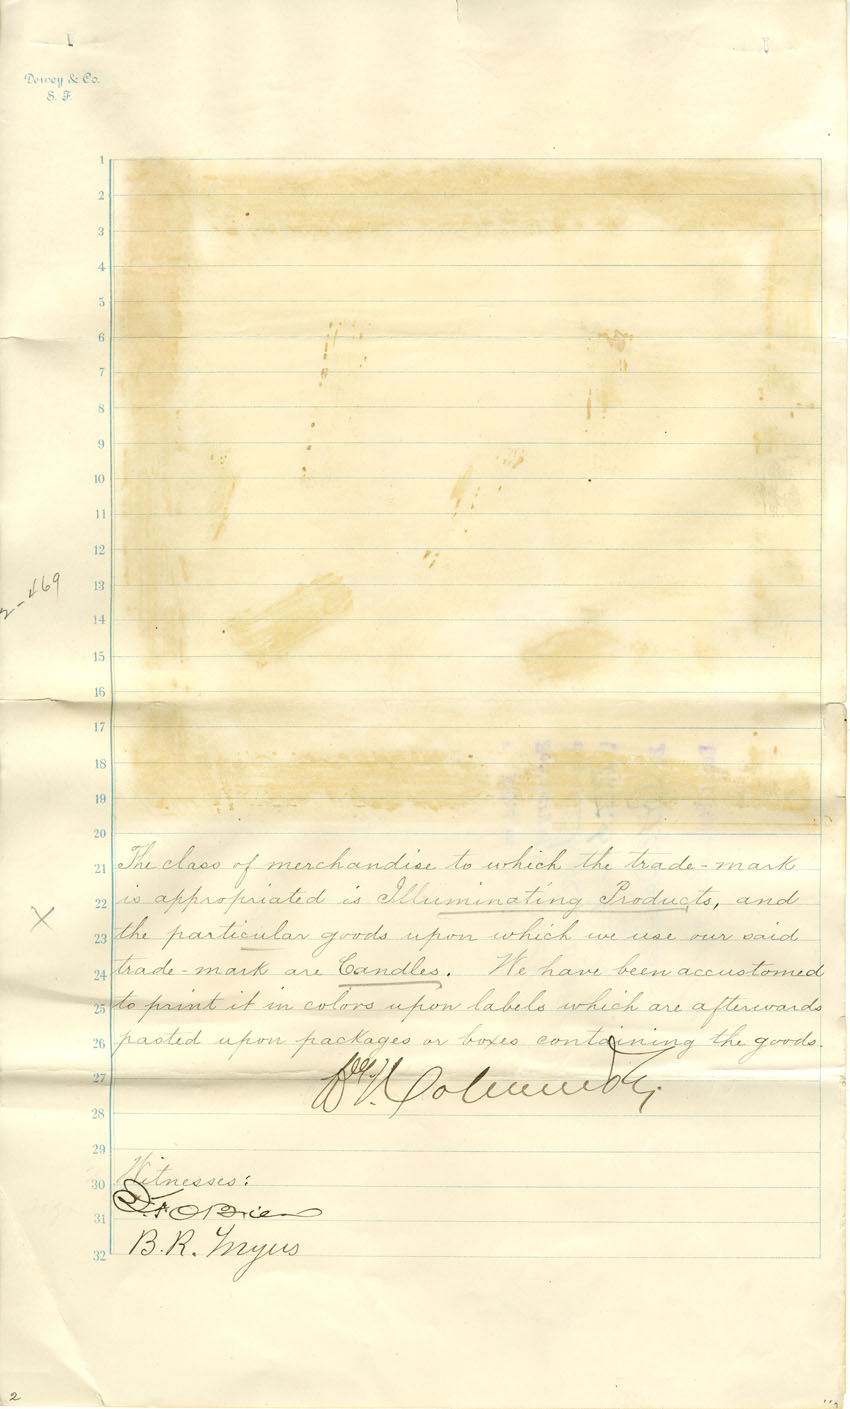 Dewey & Co.
S. F.
1
2
3
4
5
6
7
8
9
10
11
12
13
14
15
16
17
18
19
20
21 The class of merchandise to which the trade-mark
22 is appropriated is Illuminating Products, and
X
23 the particular goods upon which we use our said
24 trade-mark are Candles. We have been accustomed
25 to print it in colors upon labels which are afterwards
26 pasted upon packages or boxes containing the goods.
27
28
29
30 Witnesses:
31 O'Brien
32 B. R.
2